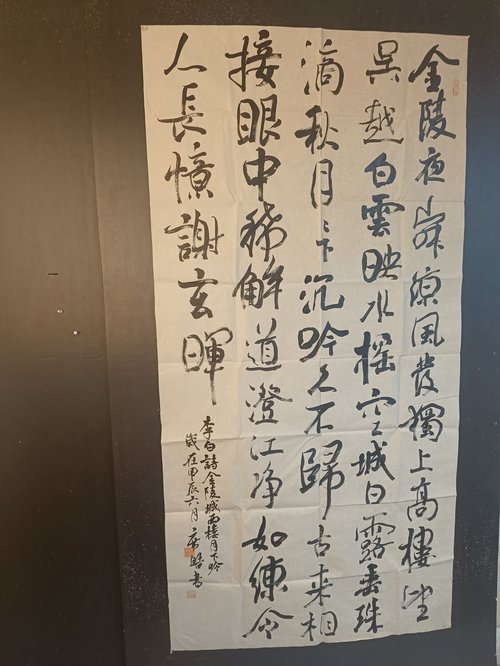 金陵夜寂凉風發獨上高樓望
吴越白雲映水摇空城白露垂珠
滴秋月〻下沉吟久不歸古来相
接眼中稀解道澄江净如練令
人長憶謝玄暉
李白詩金陵城西樓月下吟
歲在甲辰六月 書